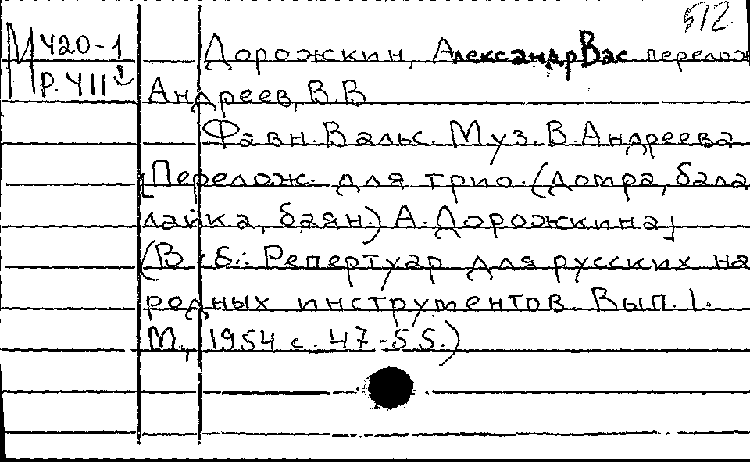 512
М 420-1
Р. 411
Дорожкин, Александр Вас перелож
Андреев, В.В
Фавн. Вальс. Муз. В. Андреева
[Перелож. для трио. (домра, бала
лайка, баян.) А. Дорожкина]
(В сб.: Репертуар для русских на
родных инструментов. Вып. 1.
М., 1954 с. 47-55.)